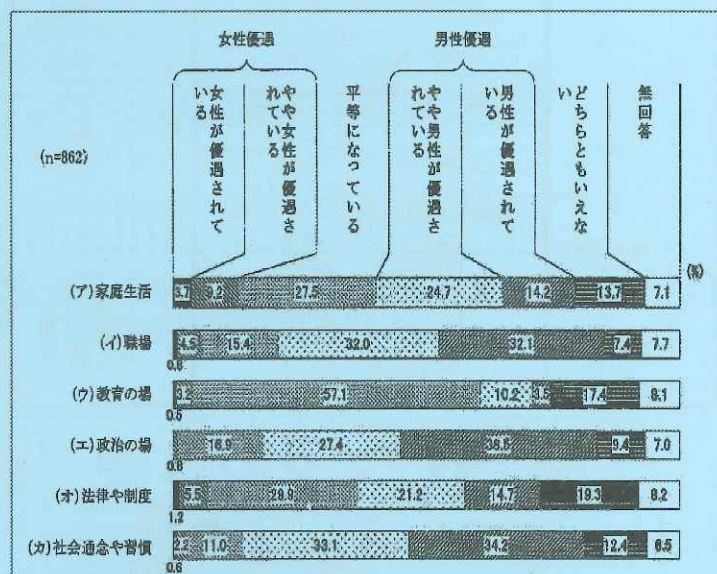 女性優遇
男性優遇
女性が優遇されている
やや女性が優遇されている
平等になっている
やや男性が優遇されている
男性が優遇されている
どちらともいえない
無回答
(n=862)
(%)
(ア)家庭生活 3.7 9.2 27.5 24.7 14.2 13.7 7.1
(イ)職場 4.5 15.4 32.0 32.1 7.4 7.7
(ウ)教育の場 3.2 57.1 10.2 3.5 17.4 8.1
(エ)政治の場 16.9 27.4 9.4 7.0
(オ)法律や制度 5.5 21.2 14.7 19.3 8.2
1.2
(カ)社会通念や習慣 2.2 11.0 33.1 34.2 12.4 6.5
0.6